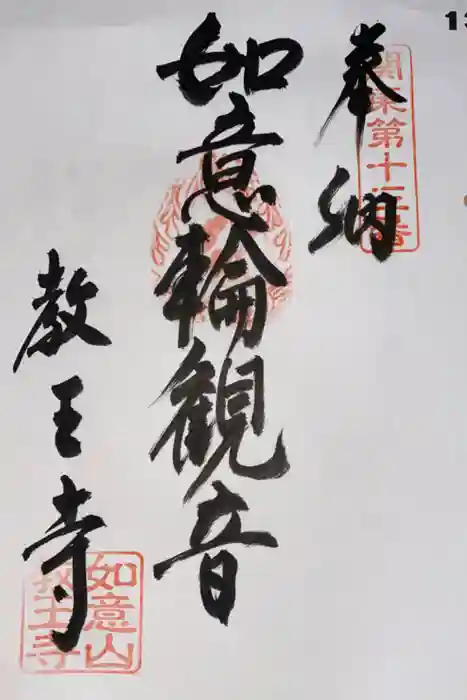 13
奉納
関東第十三番
如意輪観音
教王寺
如意山
教王寺